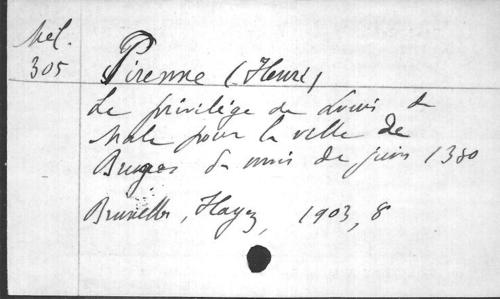 Mél.
305
Pirenne (Henri)
Le privilège de Louis de
Male pour la ville de
Bruges du mois de juin 1380
Bruxelles, Hayez, 1903, 8